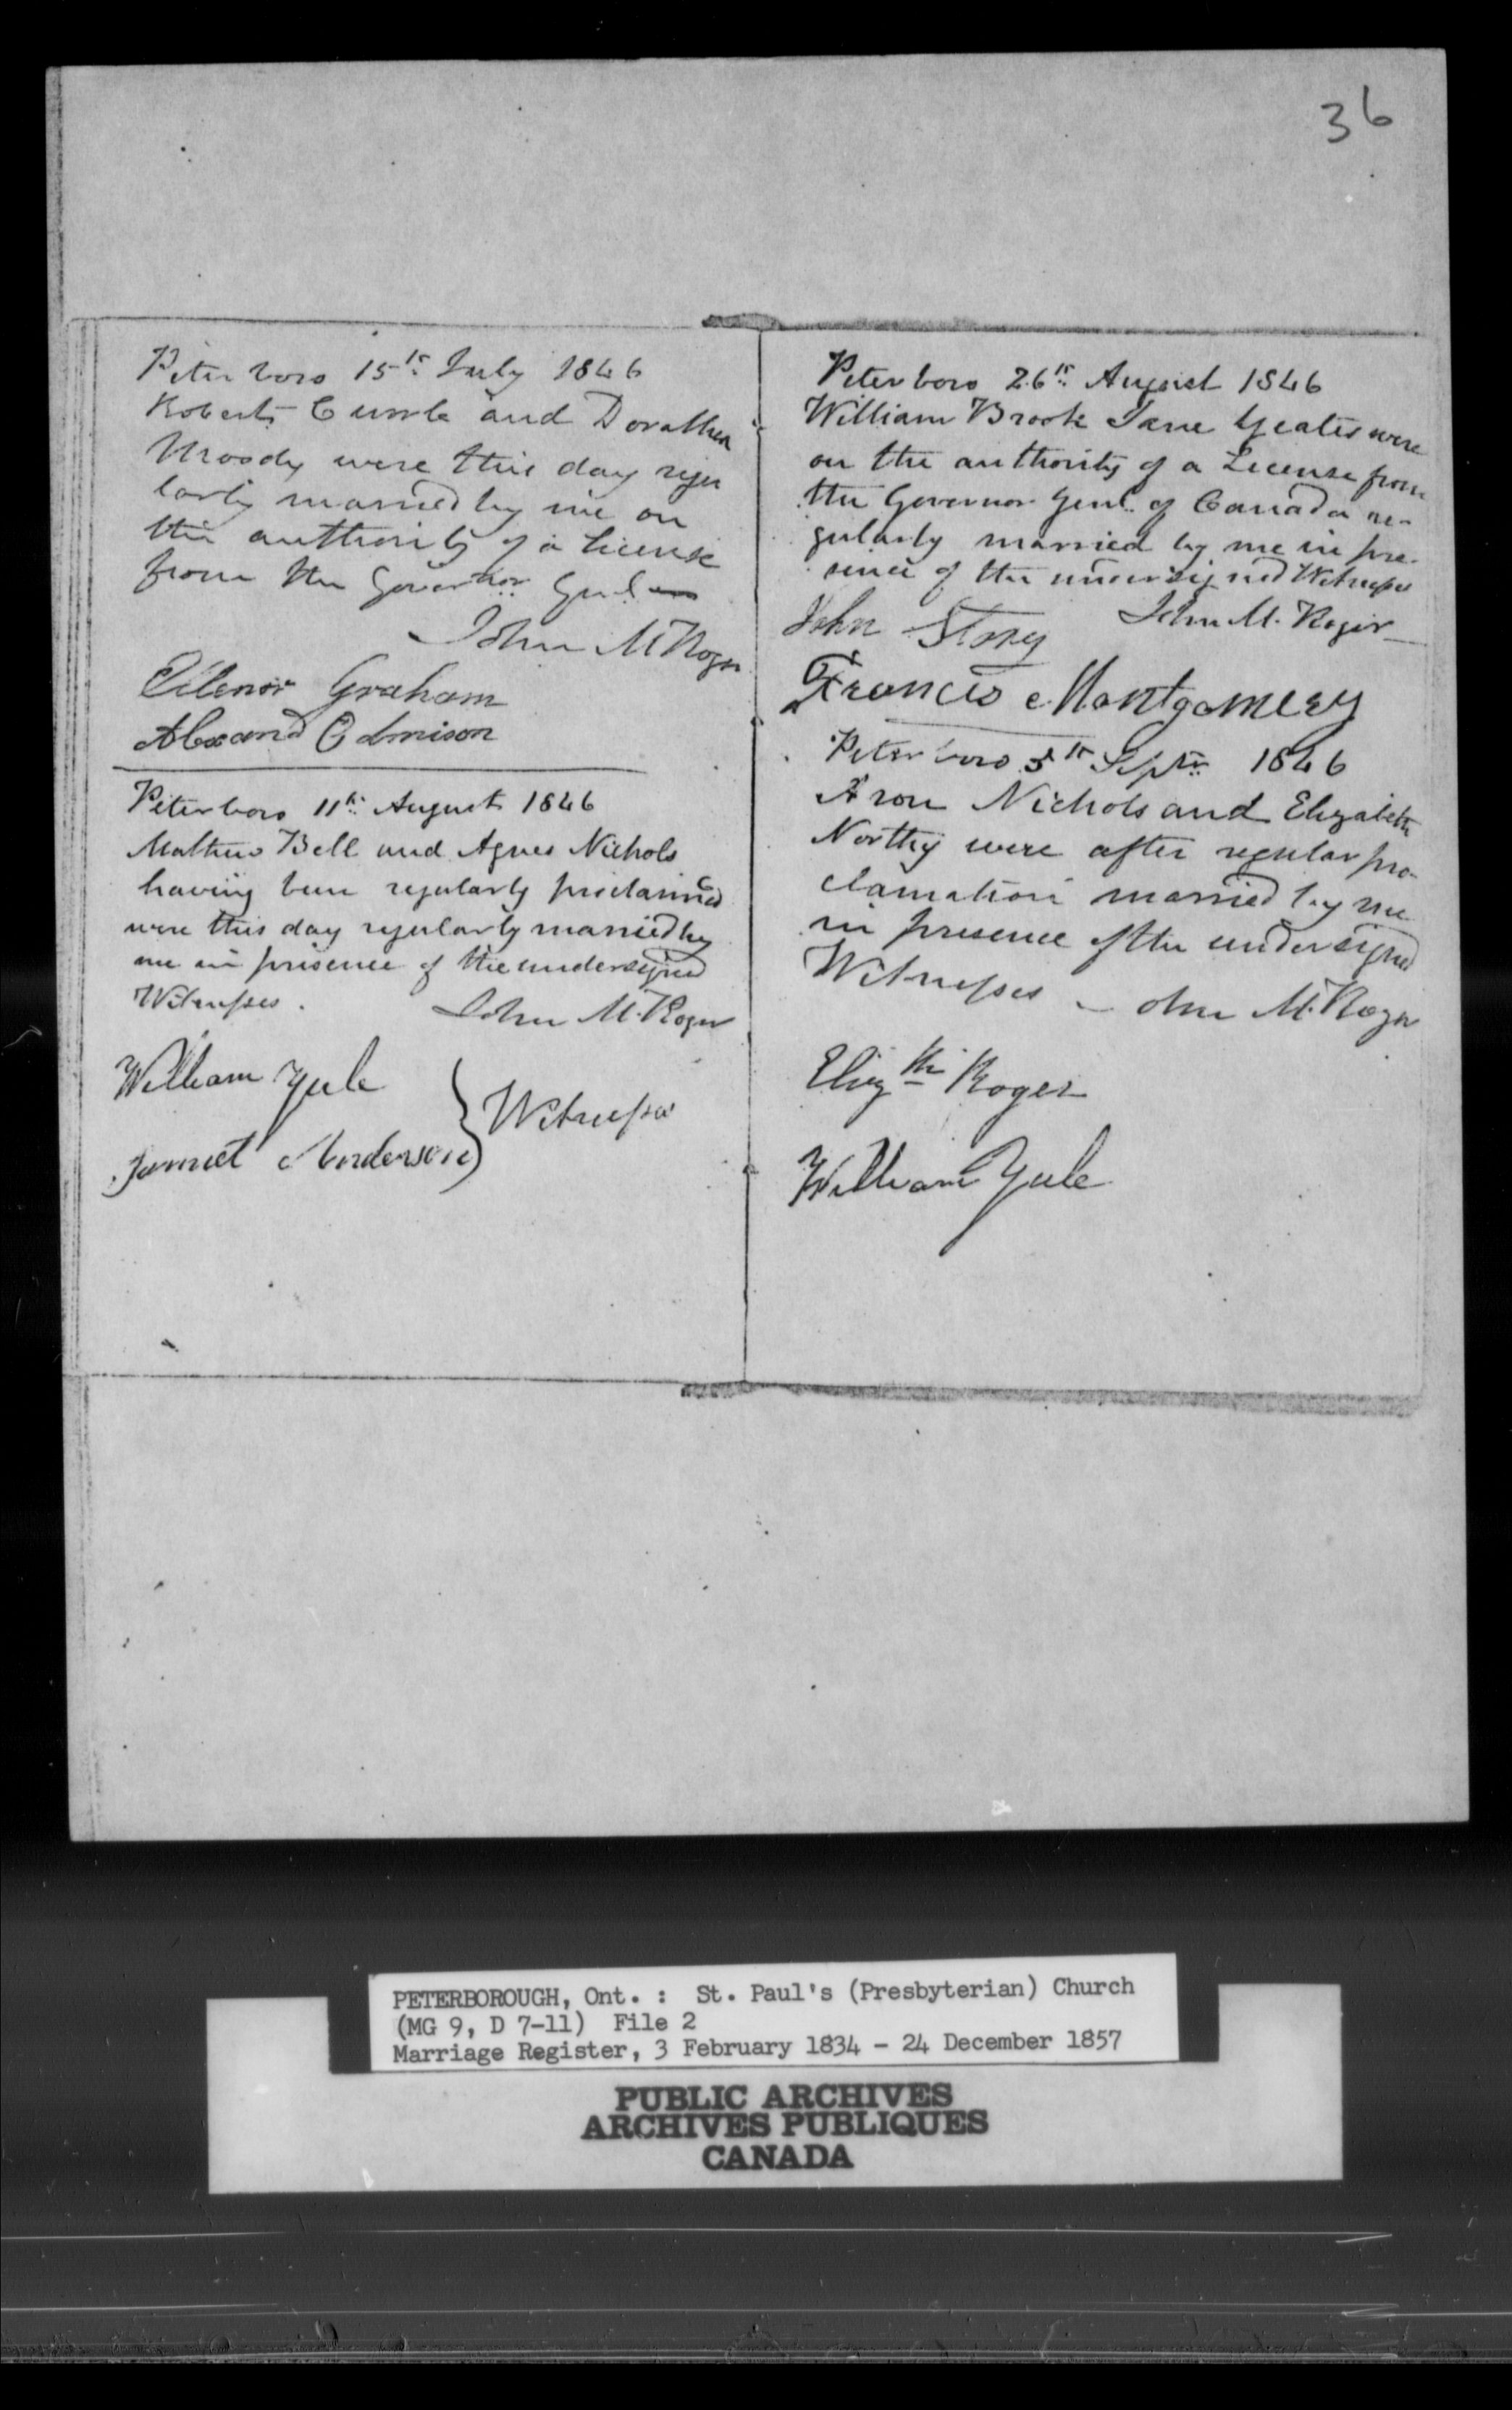 36
Peterboro 15th July 1846
Robert and Dorathea
Moody were this day regu
larly married by me on
the authority of a License
from the Governor Genl
John M Roger
Ellenor Graham
Alexand Edmison
Peterboro 11th August 1846
Mathew Bell and Agnes Nichols
having been regularly proclaimed
were this day regularly married by
me in presence of the undersigned
Witnesses.
John M. Roger
William Yule
Jannet Anderson } Witnesses
Peterboro 26th August 1846
William Brook Jane Yeates were
on the authority of a License from
the Governor Genl. of Canada re-
gularly married by me in pre-
sence of the undersigned Witnesses
John M. Roger
John Story
Francis Montgomery
Peterboro 5th Septr 1846
Aron Nichols and Elizabeth
Northy were after regular pro-
clamation married by me
in presence of the undersigned
Witnesses John M. Roger
Elizth Roger
William Yule
PETERBOROUGH, Ont. : St. Paul's (Presbyterian) Church
(MG 9, D 7-11) File 2
Marriage Register, 3 February 1834 - 24 December 1857
PUBLIC ARCHIVES
ARCHIVES PUBLIQUES
CANADA